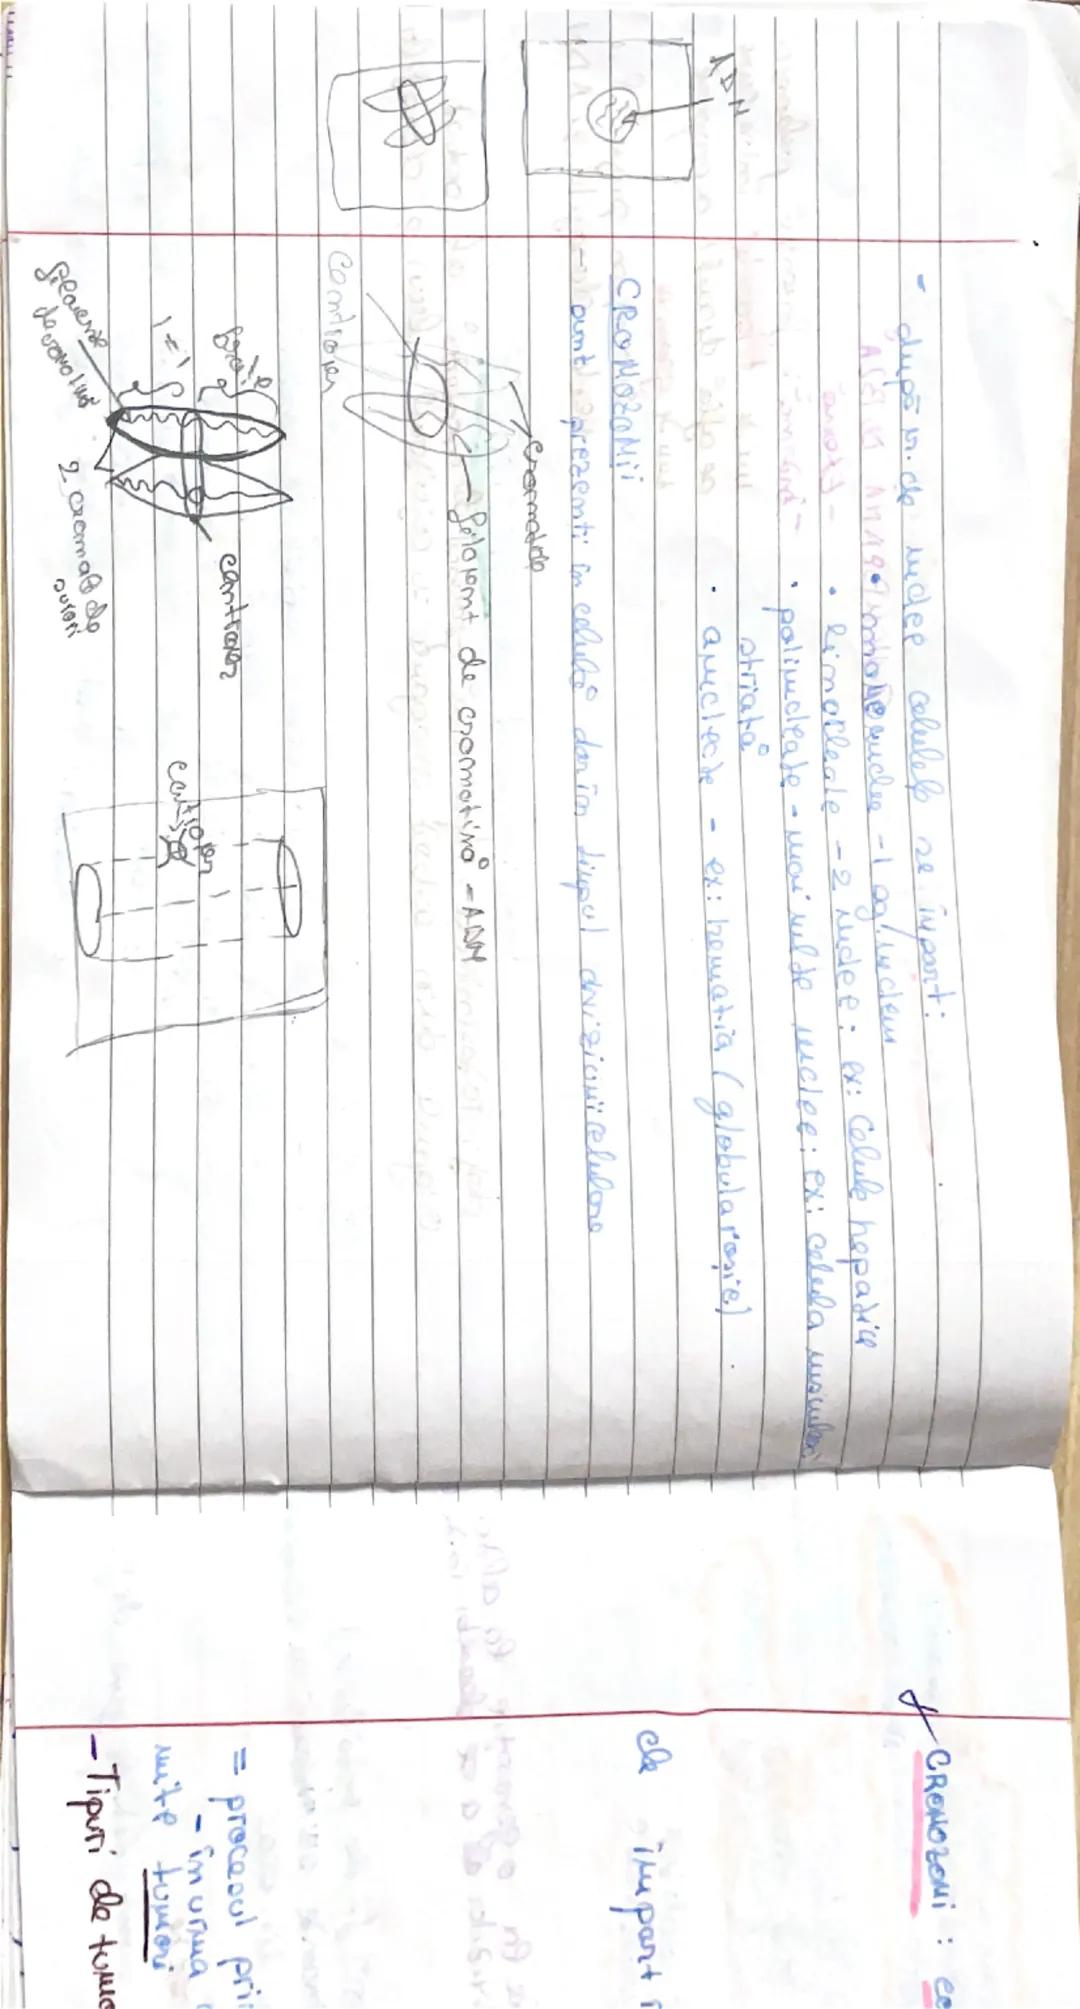 - după nr. de nuclee celulele se împart:
• mononucleare - 1 sg. nucleu
• binucleate - 2 nuclee: ex: celule hepatice
• polinucleate - mai multe nuclee: ex: celula musculară
striată
• anucleate - ex: hematia (globula roșie)
ADN
CROMOZOMII
sunt prezenți în celulă doar în timpul diviziunii celulare
cromatide
filament de cromatină - ADN
centromer
brațe
centromer
filamente
de cromatină
2 cromatide
surori
CROMOZOMI :
de împart
= procesul prin
- în urma
mite tumori
- Tipuri de tumo